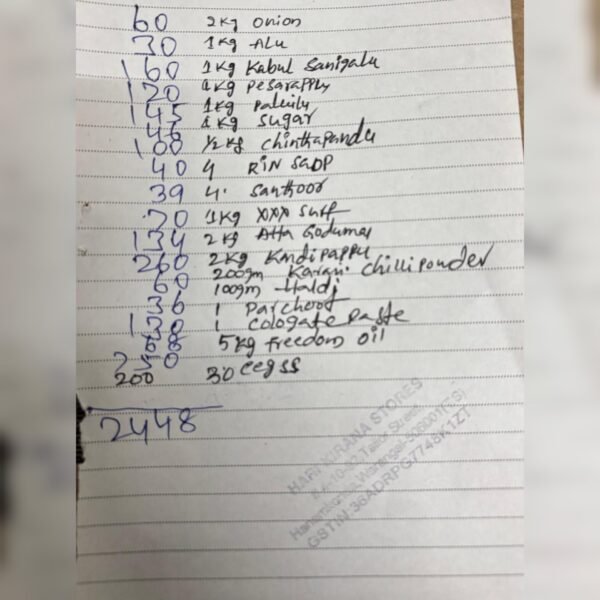 60 2Kg Onion
30 1Kg Alu
160 1Kg Kabul Sanigalu
120 1Kg Pesarappu
145 1Kg Palleilu
45 1Kg Sugar
100 1/2 Kg Chinthapandu
40 4 RIN SAOP
39 4. Santhoor
70 1Kg XXX Surf
134 2Kg Atta Godumai
260 2Kg Kandipappu
60 200gm Karam Chillipowder
100gm Haldi
36 1 Parchoot
130 1 Cologate Paste
5Kg Freedom Oil
200 30 eegss
2448
HARI KIRANA STORES
Hanamkonda, Warangal-506001(TS)